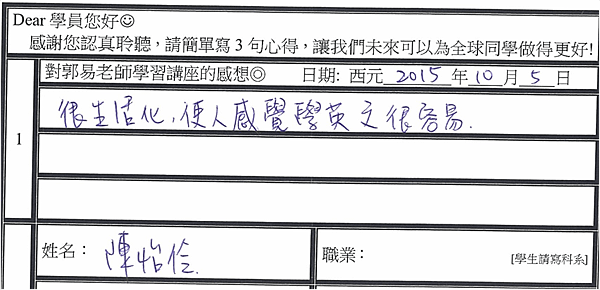 Dear 學員您好☺
感謝您認真聆聽，請簡單寫 3 句心得，讓我們未來可以為全球同學做得更好!
對郭易老師學習講座的感想◎ 日期: 西元 2015 年 10 月 5 日
1
很生活化，使人感覺學英文很容易.
姓名： 陳怡伶. 職業： [學生請寫科系]